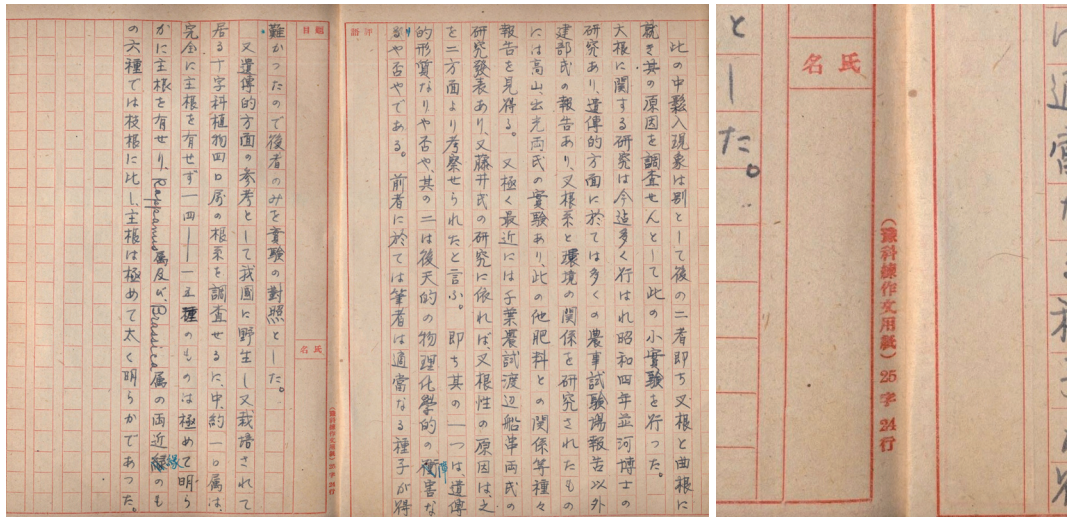 評語
此の中鬆入現象は別として後の二者即ち叉根と曲根に
就き其の原因を調査せんとして此の小實験を行つた。
大根に関する研究は今迄多く行はれ昭和四年並河博士の
研究あり、遺傳的方面に於ては多くの農事試験場報告以外
建部氏の報告あり、又根系と環境の関係を研究されたもの
には高山、出光両氏の實験あり、此の他肥料との関係等種々
報告を見得る。又極く最近には千葉農試渡辺船串両氏の
研究発表あり、又藤井氏の研究に依れば、叉根性の原因は、之
を二方面より考察せられたと言ふ。即ち其の一つは、遺傳
的形質なりや否や、其の二は後天的の物理化學的の害な
りや否やである。前者に於ては筆者は適當なる種子が得
題目
氏名
(豫科練作文用紙) 25字24行
難かつたので後者のみを實験の對照とした。
又遺傳的方面の参考として我國に野生し又栽培されて
居る十字科植物四〇属の根系を調査せるに、中、約一〇属は、
完全に主根を有せず一四――一五種のものは極めて明ら
かに主根を有せり、Rappanus属及び、Brassica属の両近縁のも
の六種では枝根に比し、主根は極めて太く明らかであつた。
とした。
氏名
(豫科練作文用紙) 25字24行